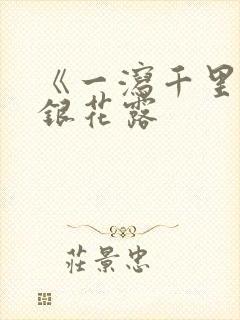 《一瀉千里
銀花露
莊景忠